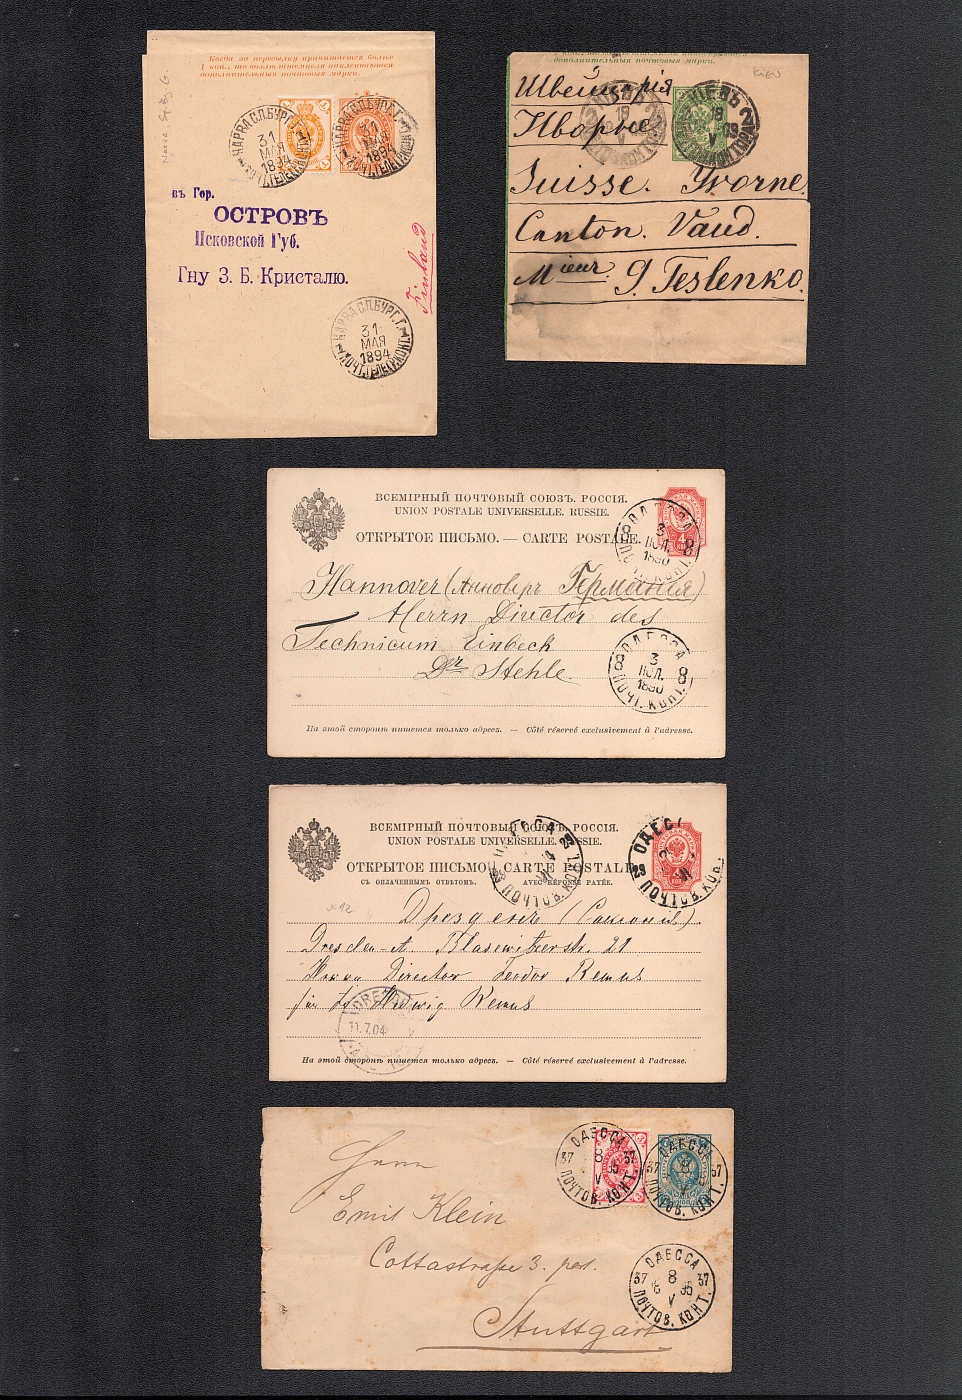 Когда за пересылку причитается болѣе
1 коп., то возлѣ штемпеля наклеиваются
дополнительныя почтовыя марки.
НАРВА С.П.БУРГ.Г.
31
МАЯ
1894
ПОЧТ.ТЕЛЕГР.КОНТ.
НАРВА С.П.БУРГ.Г.
31
МАЯ
1894
ПОЧТ.ТЕЛЕГР.КОНТ.
въ Гор.
ОСТРОВЪ
Псковской Губ.
Гну З. Б. Кристалю.
Finland
НАРВА С.П.БУРГ.Г.
31
МАЯ
1894
ПОЧТ.ТЕЛЕГР.КОНТ.
дополнительныя почтовыя марки.
KIEV
Швейцарія
Иворнъ.
Suisse. Yvorne
Canton. Vaud.
Mieur. G Teslenko.
ВСЕМІРНЫЙ ПОЧТОВЫЙ СОЮЗЪ. РОССІЯ.
UNION POSTALE UNIVERSELLE. RUSSIE.
ОТКРЫТОЕ ПИСЬМО. — CARTE POSTALE.
ОДЕССА
8 3 8
ІЮЛ.
1890
ПОЧТ. КОНТ.
Hannover (Анноверъ Германія)
Herrn Director des
Technicum Einbeck
Dr Stehle.
ОДЕССА
8 3 8
ІЮЛ.
1890
ПОЧТ. КОНТ.
На этой сторонѣ пишется только адресъ. — Côté réservé exclusivement à l'adresse.
ВСЕМІРНЫЙ ПОЧТОВЫЙ СОЮЗЪ. РОССІЯ.
UNION POSTALE UNIVERSELLE. RUSSIE.
ОТКРЫТОЕ ПИСЬМО CARTE POSTALE
СЪ ОПЛАЧЕННЫМЪ ОТВѢТОМЪ. AVEC RÉPONSE PAYÉE.
№ 12
Дрезденъ (Саксонія).
Dresden-A. Blasewitzerstr. 21
Herrn Director Teodor Remus
für Ludwig Remus
11.7.04
На этой сторонѣ пишется только адресъ. — Côté réservé exclusivement à l'adresse.
ОДЕССА
37 8 37
V
ПОЧТОВ. КОНТ.
ОДЕССА
37 8 37
V
ПОЧТОВ. КОНТ.
Herrn
Emil Klein
Cottastraße 3. par.
Stuttgart
ОДЕССА
37 8 37
V
ПОЧТОВ. КОНТ.